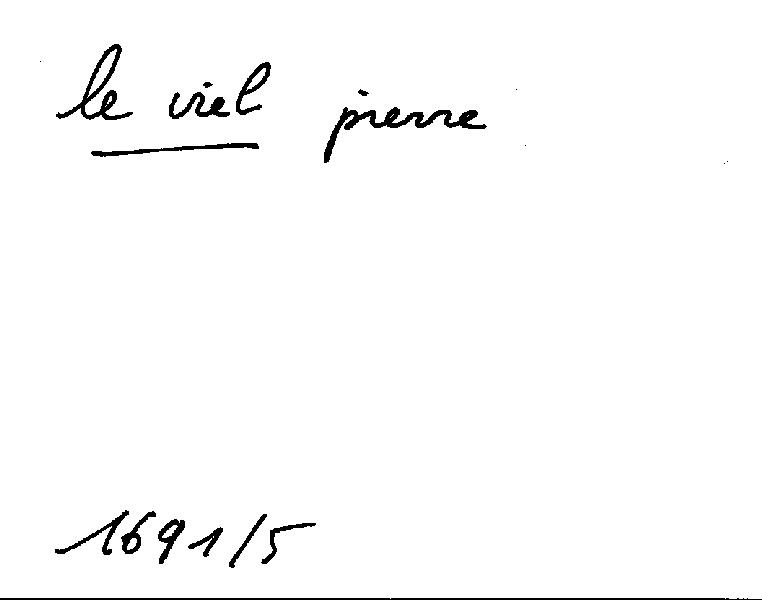 le viel pierre
1691/5